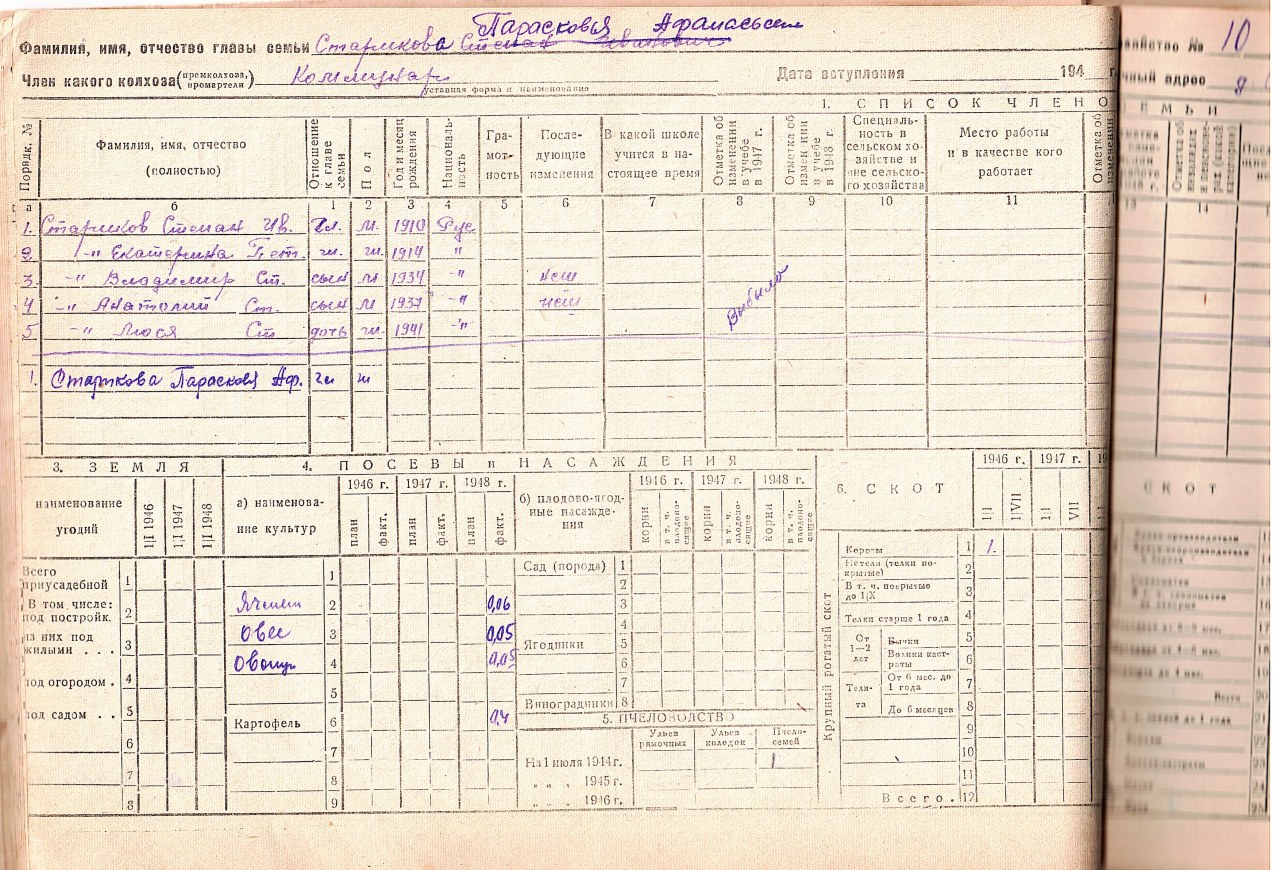 Парасковья Афанасьевн
Фамилия, имя, отчество главы семьи Старикова Степан Иванович
Член какого колхоза (промколхоза, промартели) Коммунар Дата вступления 194 г.
уставная форма и наименование
1. СПИСОК ЧЛЕНО
Порядк. № Фамилия, имя, отчество (полностью) Отношение к главе семьи Пол Год и месяц рождения Националь-ность Гра-мот-ность После-дующие изменения В какой школе учится в на-стоящее время Отметка об изменении в учебе в 1947 г. Отметка об изменении в учебе в 1948 г. Специаль-ность в сельском хо-зяйстве и вне сельско-го хозяйства Место работы и в качестве кого работает
а б 1 2 3 4 5 6 7 8 9 10 11
1. Стариков Степан Ив. Гл. м. 1910 Рус
2 -"- Екатерина Пет. ж. ж. 1914 "
3 -"- Владимир Ст. сын м 1934 -"- нет
4 -"- Анатолий Ст. сын м 1937 -"- нет
Выбыло
5 -"- Люся Ст дочь ж. 1941 -"-
1. Старикова Парасковья Аф. гл ж
3. ЗЕМЛЯ
наименование угодий 1/I 1946 1/I 1947 1/I 1948
Всего приусадебной 1
В том числе: под постройк. 2
из них под жилыми . . . 3
под огородом . 4
под садом . . 5
6
7
8
4. ПОСЕВЫ и НАСАЖДЕНИЯ
а) наименова-ние культур 1946 г. 1947 г. 1948 г.
план факт. план факт. план факт.
1
Ячмен 2 0,06
Овес 3 0,05
Овощи 4 0,05
5
Картофель 6 0,4
7
8
9
б) плодово-ягод-ные насажде-ния 1946 г. 1947 г. 1948 г.
корни в т. ч. плодоно-сящие корни в т. ч. плодоно-сящие корни в т. ч. плодоно-сящие
Сад (порода) 1
2
3
4
Ягодники 5
6
7
Виноградники 8
5. ПЧЕЛОВОДСТВО
Ульев рамочных Ульев колодок Пчело-семей
На 1 июля 1944 г.
" " " 1945 г.
" " " 1946 г.
6. СКОТ 1946 г. 1947 г.
1/I 1/VII 1/I VII
Крупный рогатый скот
Коровы 1 1.
Нетели (телки по-крытые) 2
В т. ч. покрытые до 1/IX 3
Телки старше 1 года 4
От 1—2 лет Бычки 5
Волики каст-раты 6
Теля-та От 6 мес. до 1 года 7
До 6 месяцев 8
9
10
11
Всего . 12
зяйство № 10
чный адрес
ЕМЬИ
13 14
СКОТ